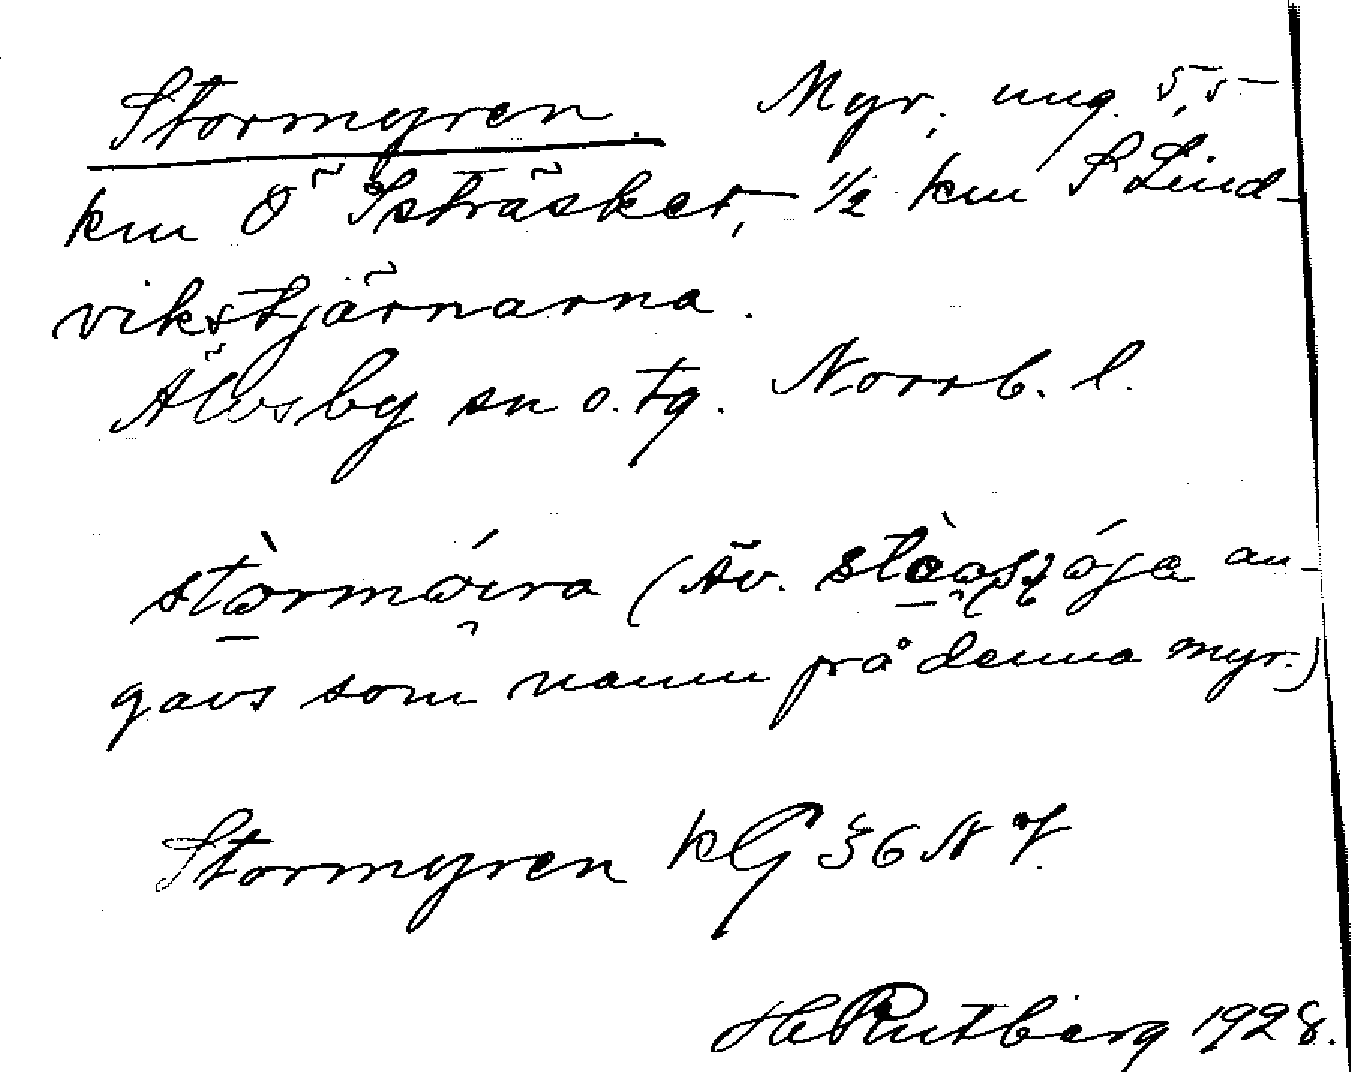 Stormyren. Myr, ung. 5,5
km Ö Isträsket, 1/2 km S Lind-
vikstjärnarna.
Älvsby sn o. tg. Norrb. l.
(Äv. an-
gavs som namn på denna myr.)
Stormyren kG 36 NV.
H Rutberg 1928.